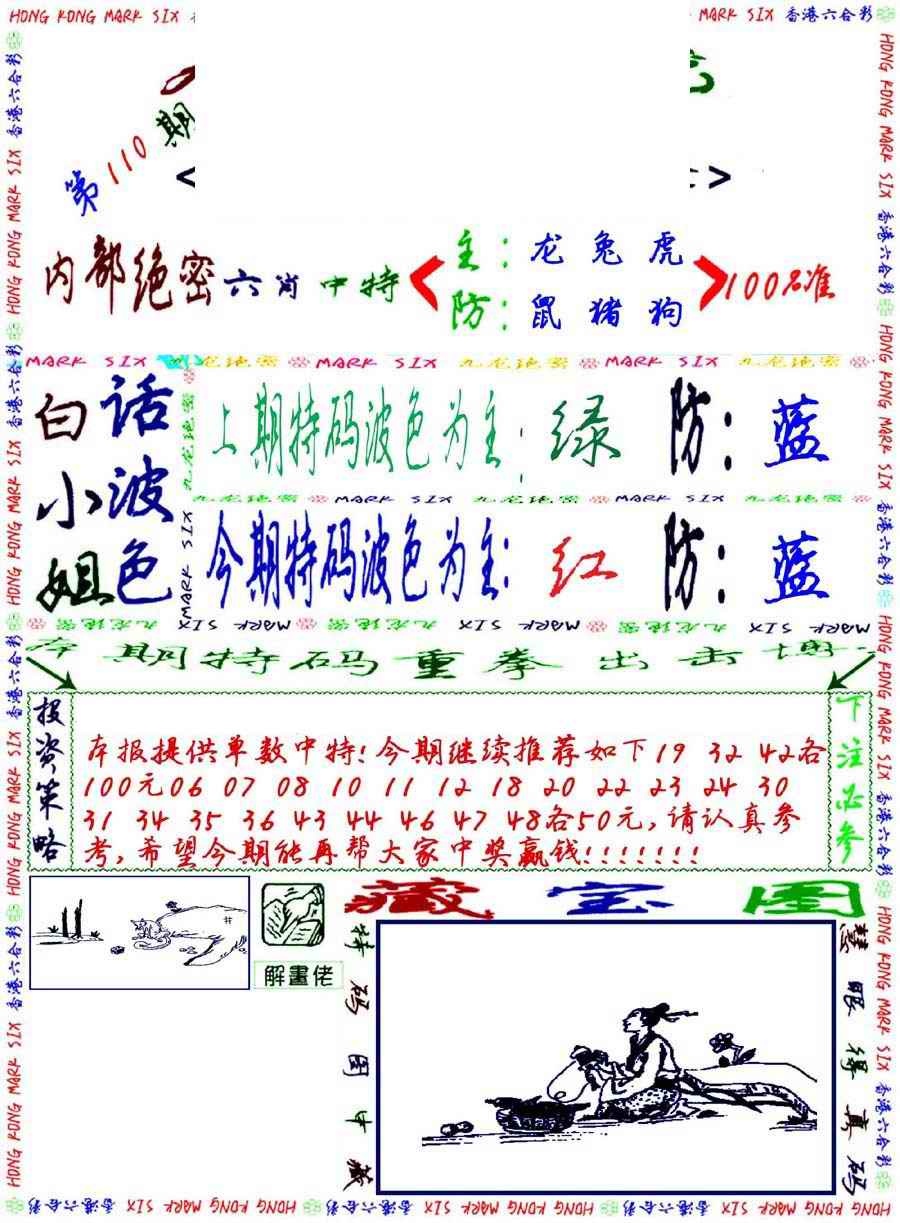 HONG KONG MARK SIX
MARK SIX 香港六合彩
第110期
< >
内部绝密六肖中特
主:龙兔虎
防:鼠猪狗
100%准
MARK SIX 九龙绝密 MARK SIX 九龙绝密 MARK SIX 九龙绝密
白话
小波
姐色
上期特码波色为主:绿 防:蓝
九龙绝密 MARK SIX 九龙绝密 MARK SIX 九龙绝密
今期特码波色为主:红 防:蓝
九龙绝密 MARK SIX 九龙绝密 MARK SIX 九龙绝密 MARK SIX
期特码重拳出击
投资策略
本报提供单数中特!今期继续推荐如下19 32 42各
100元06 07 08 10 11 12 18 20 22 23 24 30
31 34 35 36 43 44 46 47 48各50元,请认真参
考,希望今期能再帮大家中奖赢钱!!!!!!!
下注必参
解畫佬
藏宝图
特码图中藏
慧眼得真码
香港六合彩 HONG KONG MARK SIX